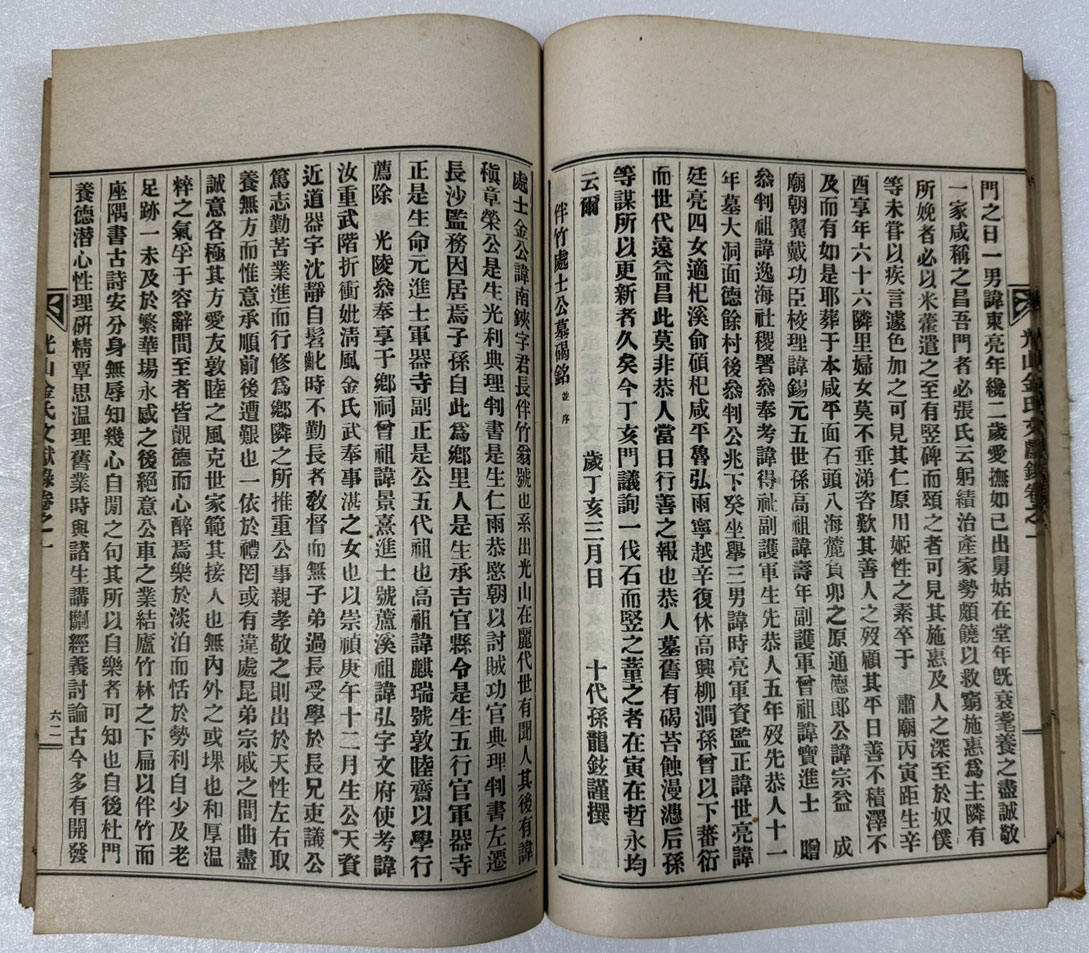 門之日一男諱東亮年纔二歲愛撫如己出舅姑在堂年旣衰耄養之盡誠敬
一家咸稱之昌吾門者必張氏云躬績治產家勢頗饒以救窮施惠爲主隣有
所娩者必以米藿遣之至有竪碑而頌之者可見其施惠及人之深至於奴僕
等未甞以疾言遽色加之可見其仁原用姬性之素卒于 肅廟丙寅距生辛
酉享年六十六隣里婦女莫不垂涕咨歎其善人之歿顧其平日善不積澤不
及而有如是耶葬于本咸平面石頭八海麓負卯之原通德郞公諱宗益 成
廟朝翼戴功臣校理諱錫元五世孫高祖諱壽年副護軍曾祖諱寶進士 贈
叅判祖諱逸海社稷署叅奉考諱得祉副護軍生先恭人五年歿先恭人十一
年墓大洞面德餘村後叅判公兆下癸坐擧三男諱時亮軍資監正諱世亮諱
廷亮四女適杞溪俞碩杞咸平魯弘雨寧越辛復休高興柳澗孫曾以下蕃衍
而世代遠益昌此莫非恭人當日行善之報也恭人墓舊有碣苔蝕漫漶后孫
等謀所以更新者久矣今丁亥門議詢一伐石而竪之董之者在寅在哲永均
云爾 歲丁亥三月日 十代孫龍鉉謹撰
伴竹處士公墓碣銘 並序
處士金公諱南鋏字君長伴竹翁號也系出光山在麗代世有聞人其後有諱
稹章榮公是生光利典理判書是生仁雨恭愍朝以討賊功官典理判書左遷
長沙監務因居焉子孫自此爲鄕里人是生承吉官縣令是生五行官軍器寺
正是生命元進士軍器寺副正是公五代祖也高祖諱麒瑞號敦睦齋以學行
薦除 光陵叅奉享于鄕祠曾祖諱景熹進士號蘆溪祖諱弘字文府使考諱
汝重武階折衝妣淸風金氏武奉事湛之女也以崇禎庚午十二月生公天資
近道器宇沈靜自髫齔時不勤長者敎督而無子弟過長受學於長兄吏議公
篤志勤苦業進而行修爲鄕隣之所推重公事親孝敬之則出於天性左右取
養無方而惟意承順前後遭艱也一依於禮罔或有違處昆弟宗戚之間曲盡
誠意各極其方愛友敦睦之風克世家範其接人也無內外之或堁也和厚溫
粹之氣孚于容辭問至者皆覿德而心醉焉樂於淡泊而恬於勢利自少及老
足跡一未及於繁華場永感之後絕意公車之業結廬竹林之下扁以伴竹而
座隅書古詩安分身無辱知幾心自閒之句其所以自樂者可知也自後杜門
養德潛心性理硏精覃思溫理舊業時與諸生講闢經義討論古今多有開發
光山金氏文獻錄卷之一
六二
光山金氏文獻錄卷之一